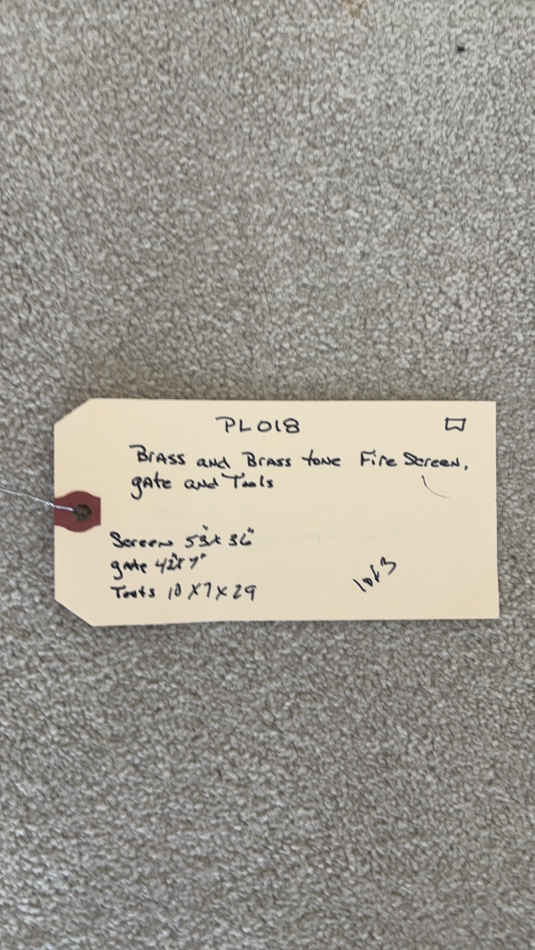 PL018
Brass and Brass tone Fire Screen,
gate and Tools
Screen 53"x 36"
gate 42"x 7"
Tools 10 x 7 x 29
1 of 3